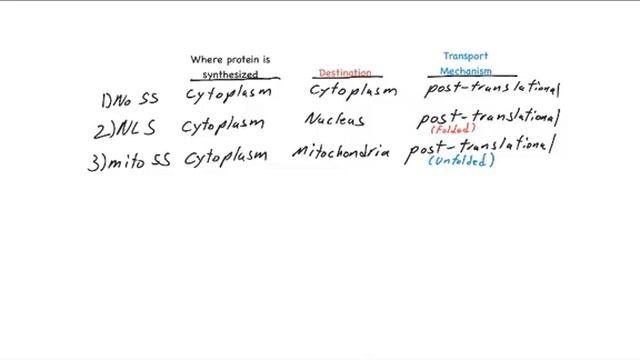 Where protein is synthesized Destination Transport Mechanism
1) No SS cytoplasm cytoplasm post-translational
2) NLS cytoplasm Nucleus post-translational
(Folded)
3) mito SS cytoplasm Mitochondria post-translational
(Unfolded)